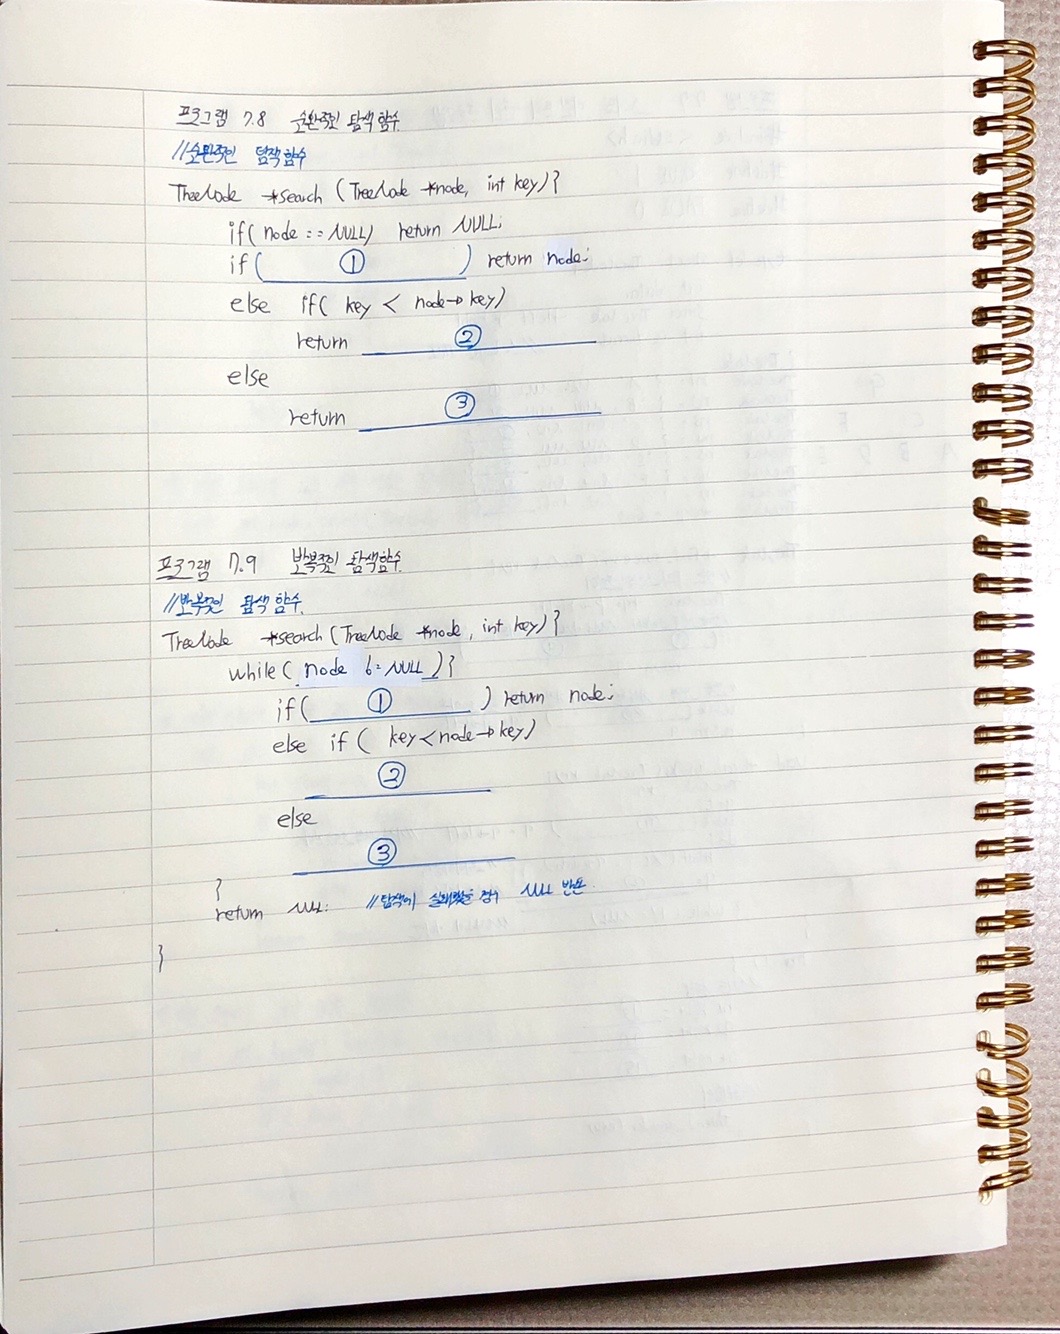 프로그램 7.8 순환적인 탐색 함수
//순환적인 탐색 함수
TreeNode *search (TreeNode *node, int key){
if( node == NULL) return NULL;
if( ① ) return node;
else if( key < node->key)
return ②
else
return ③
프로그램 7.9 반복적인 탐색함수
//반복적인 탐색 함수
TreeNode *search (TreeNode *node, int key){
while( node != NULL ){
if( ① ) return node;
else if( key<node->key)
②
else
③
}
return NULL; //탐색이 실패했을 경우 NULL 반환
}